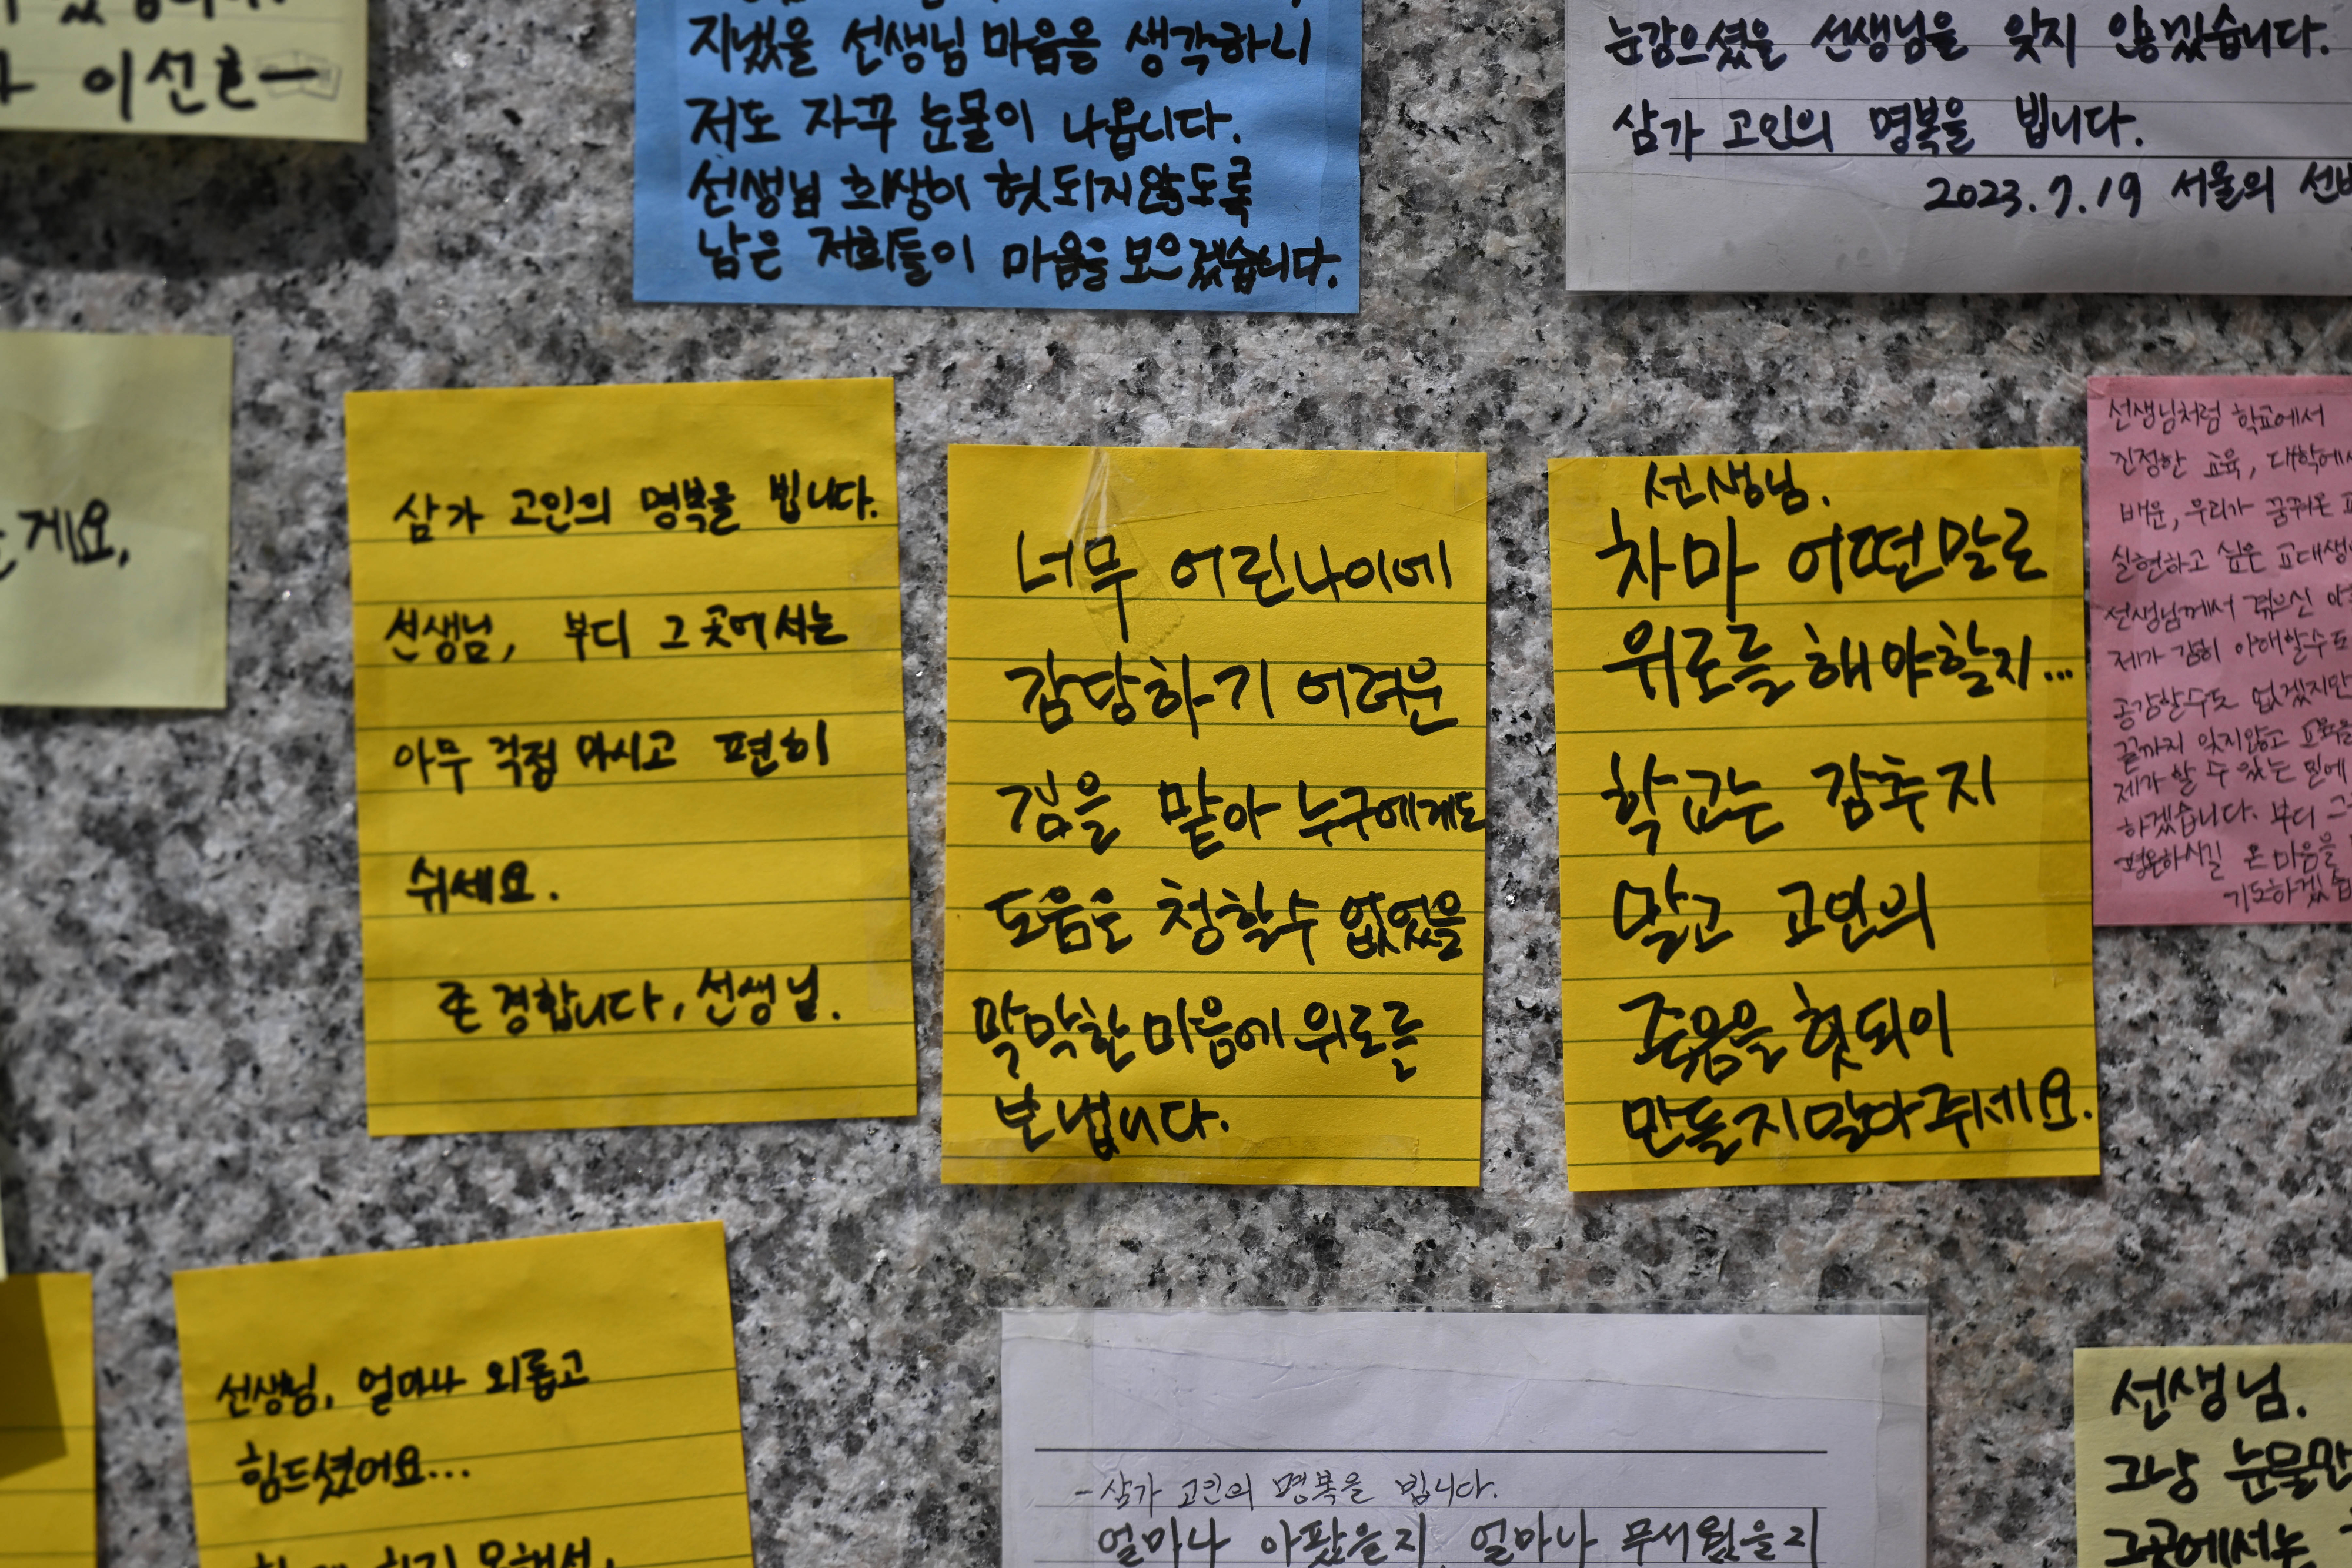 이선호
지냈을 선생님 마음을 생각하니
저도 자꾸 눈물이 나옵니다.
선생님 희생이 헛되지않도록
남은 저희들이 마음을 모으겠습니다.
눈감으셨을 선생님을 잊지 않겠습니다.
삼가 고인의 명복을 빕니다.
2023.7.19 서울의
게요,
삼가 고인의 명복을 빕니다.
선생님, 부디 그 곳에서는
아무 걱정 마시고 편히
쉬세요.
존경합니다, 선생님.
너무 어린나이에
감당하기 어려운
짐을 맡아 누구에게도
도움은 청할수 없었을
막막한 마음에 위로를
보냅니다.
선생님.
차마 어떤말로
위로를 해야할지...
학교는 감추지
말고 고인의
죽음을 헛되이
만들지말아주세요.
선생님처럼 학교에서
진정한 교육, 대학에서
배운, 우리가 꿈꿔온
실현하고 싶은 교대생
선생님께서 겪으신
제가 감히 이해할수도
공감할수도 없겠지만
끝까지 잊지않고 교육을
제가 할 수 있는 일에
하겠습니다. 부디 그
평온하시길 온 마음을
기도하겠습
선생님, 얼마나 외롭고
힘드셨어요...
-삼가 고인의 명복을 빕니다.
얼마나 아팠을지, 얼마나 무서웠을지
선생님.
그냥 눈물만
그곳에서는